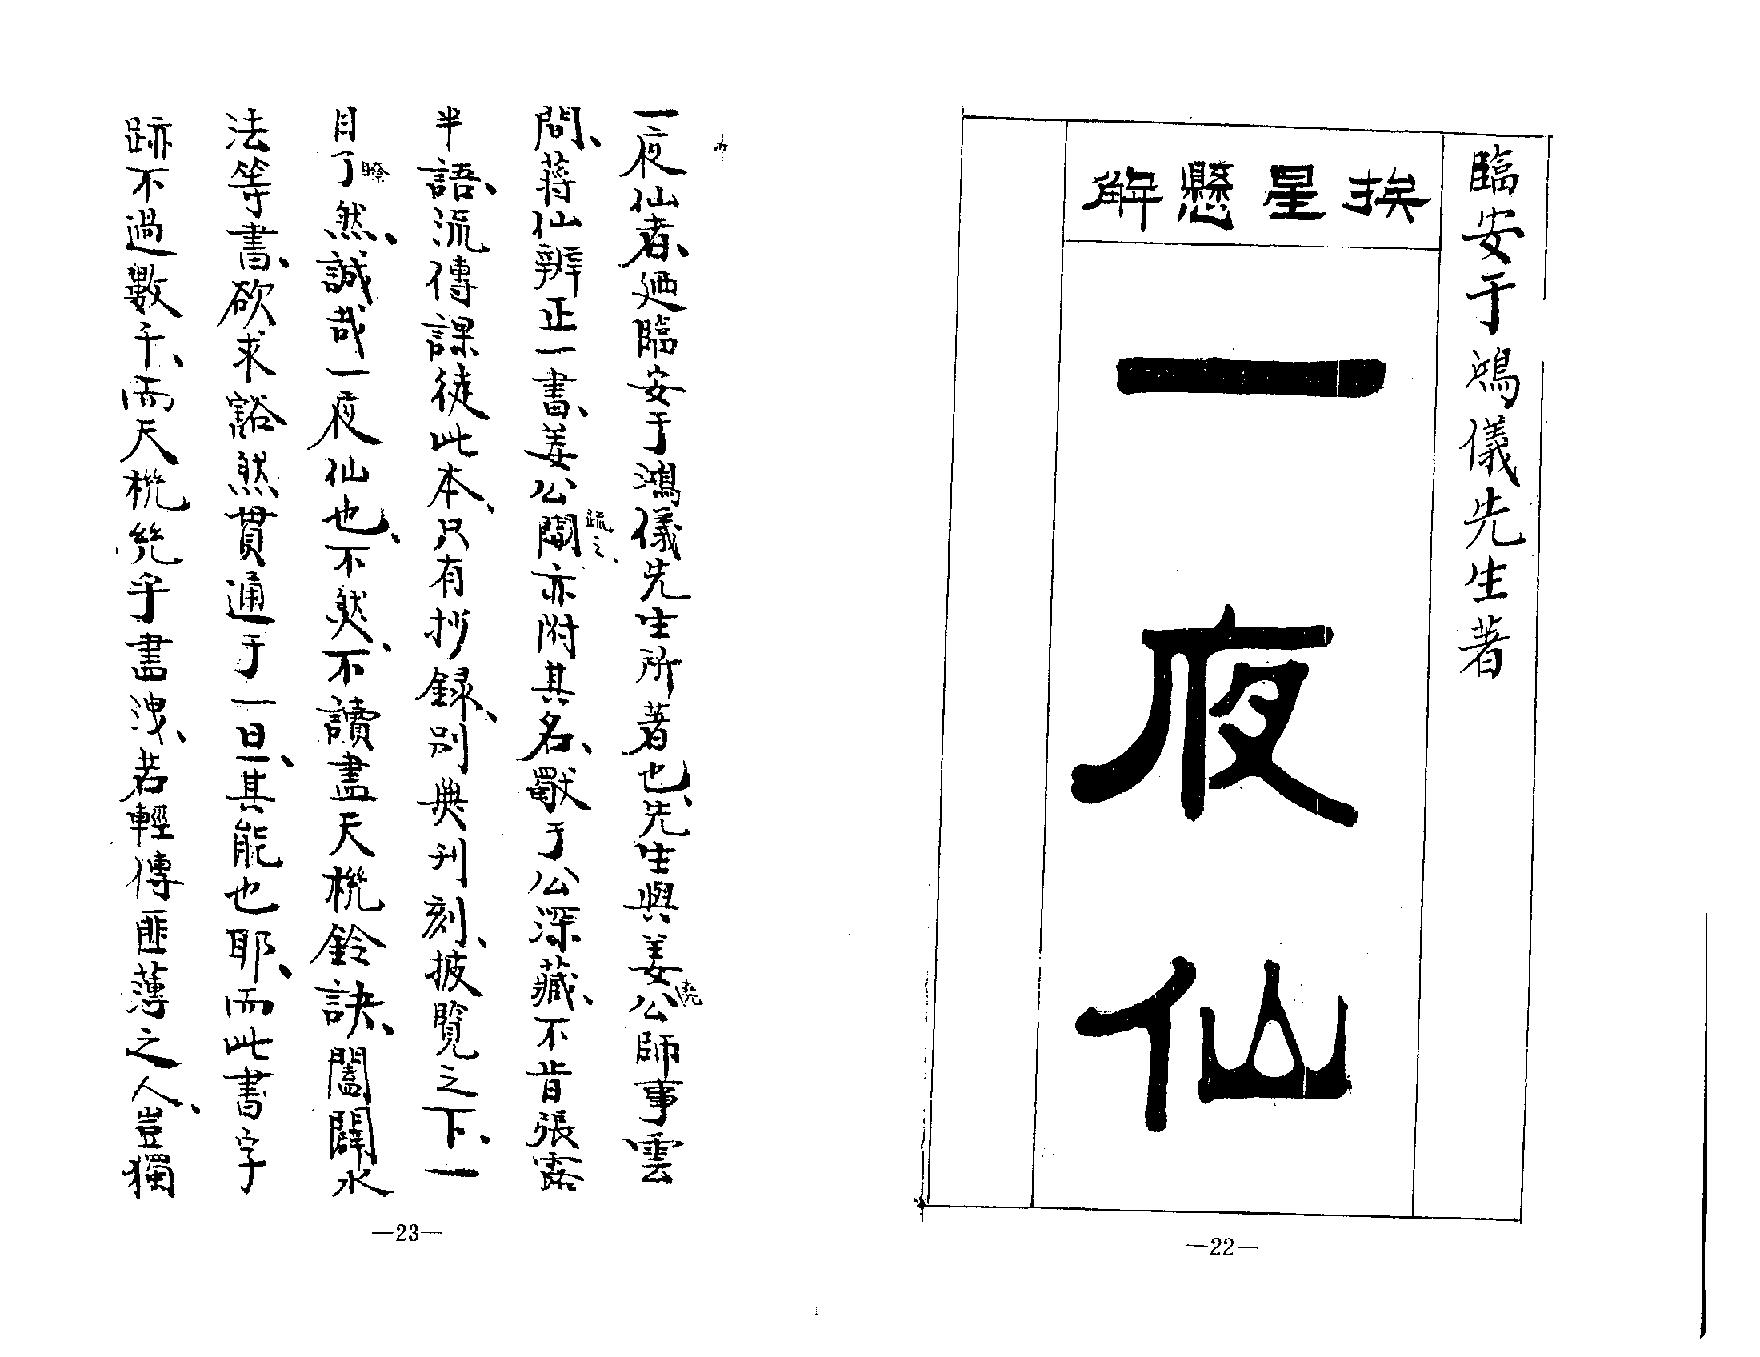 臨安于鴻儀先生著
挨星懸解
一夜仙
—22—
一夜仙者、廼臨安于鴻儀先生所著也、先生與姜公師事雲
堯
間、蔣仙辨正一書、姜公闢亦附其名、獸于公深藏、不肯張露
疏之
半語、流傳課徒此本、只有抄録、別典刊刻、披覽之下、一
目了然、誠哉一夜仙也、不然、不讀盡天機鈐訣、闔闢水
瞭
法等書、欲求豁然貫通于一旦、其能也耶、而此書字
跡不過數千、而天機凳乎盡洩、若輕傳匪薄之人、豈獨
—23—